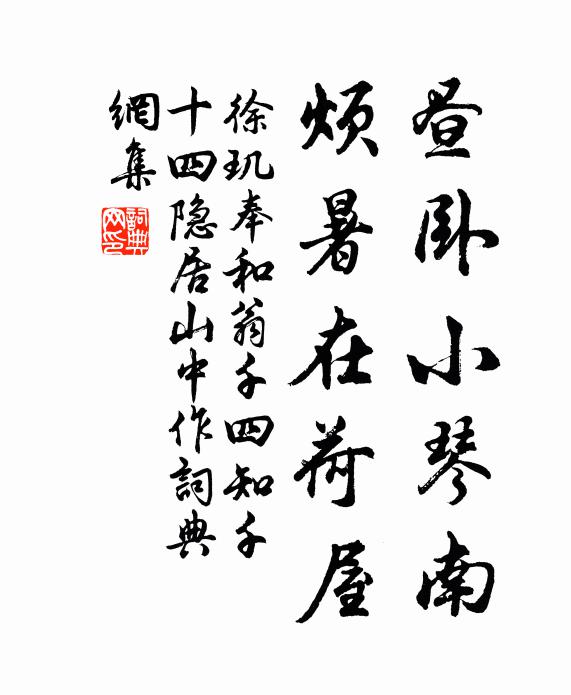 昼卧小琴南
烦暑在荷屋
徐玑奉和翁千四知千
十四隐居山中作詞典
網集
詞典網印